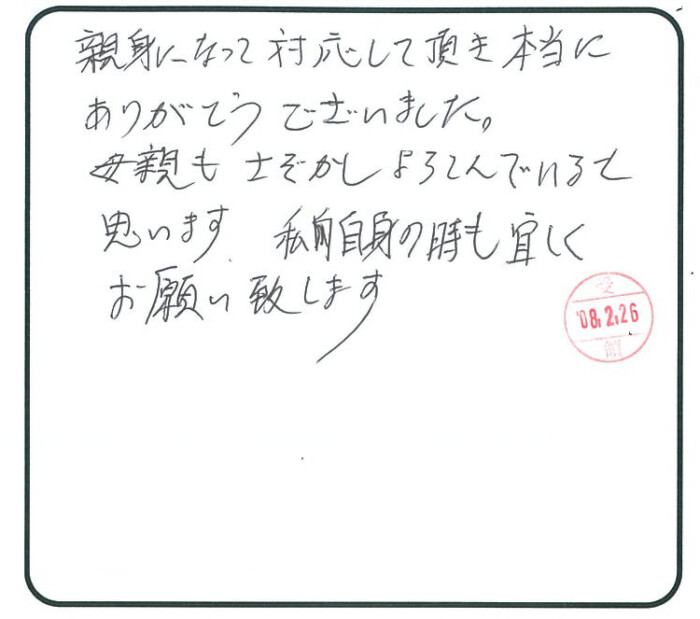 親身になって対応して頂き本当に
ありがとうございました。
母親もさぞかしよろこんでいると
思います 私自身の時も宜しく
お願い致します
受
'08.2.26
領